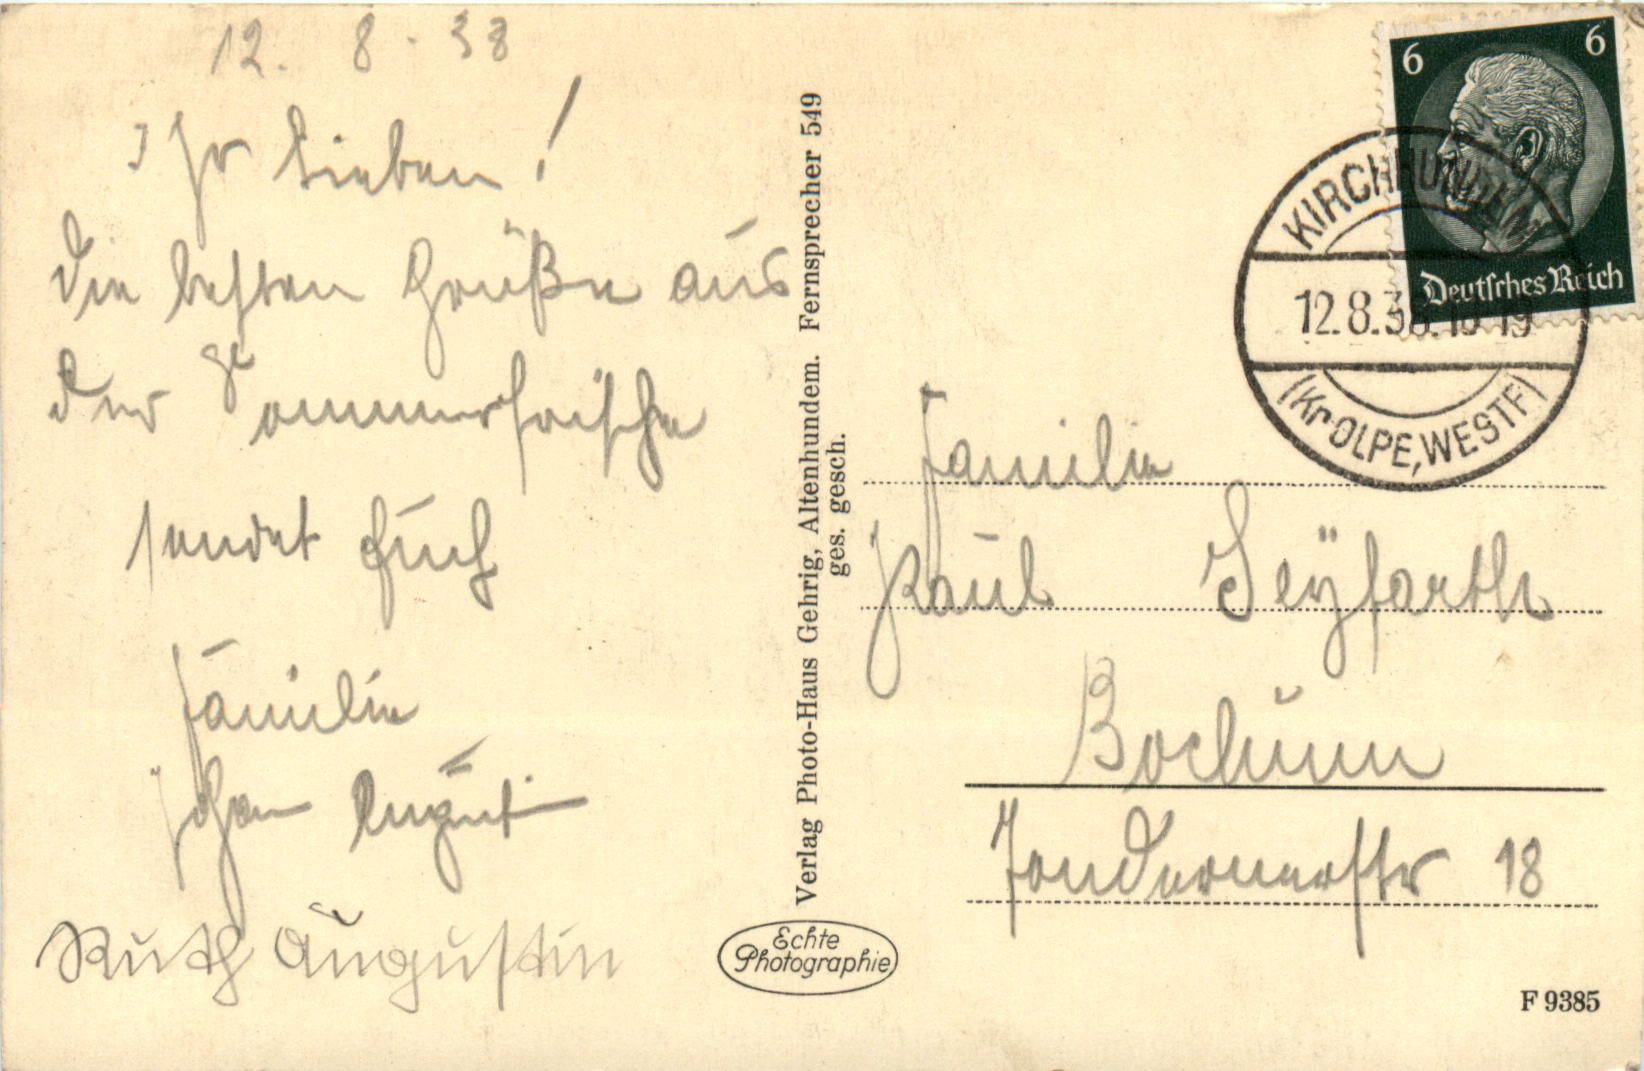 12. 8. 38
Ihr Lieben!
Die besten Grüße aus
der Sommerfrische
sendet Euch
Familie
Ruth Augustin
Verlag Photo-Haus Gehrig, Altenhundem. Fernsprecher 549
ges. gesch.
Echte
Photographie
6 6
Deutsches Reich
KIRCHHUNDEM
12.8.38.
(Kr OLPE, WESTF)
Familie
Paul Seyfarth
Bochum
18
F 9385